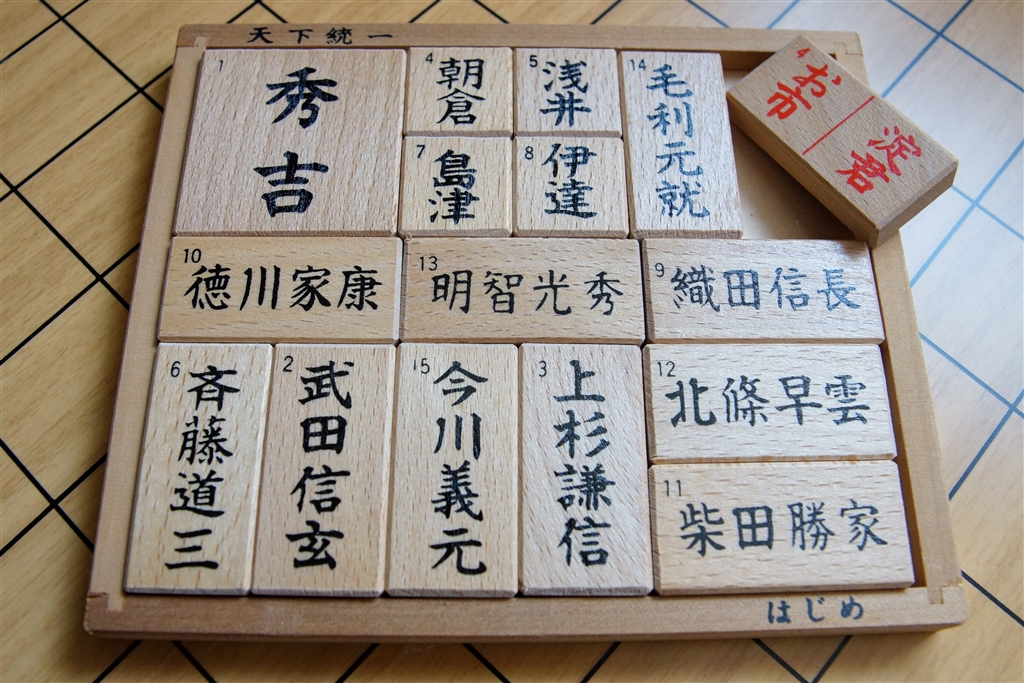 天下統一
1 秀吉
4 朝倉
5 浅井
14 毛利元就
4 お市
淀君
7 島津
8 伊達
10 徳川家康
13 明智光秀
9 織田信長
6 斉藤道三
2 武田信玄
15 今川義元
3 上杉謙信
12 北條早雲
11 柴田勝家
はじめ